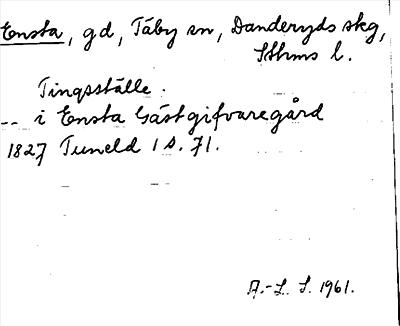 Ensta, gd, Täby sn, Danderyds skg,
Sthms l.
Tingsställe.
-- i Ensta Gästgifvaregård
1827 Tuneld 1 s. 71.
A.-L. S. 1961.